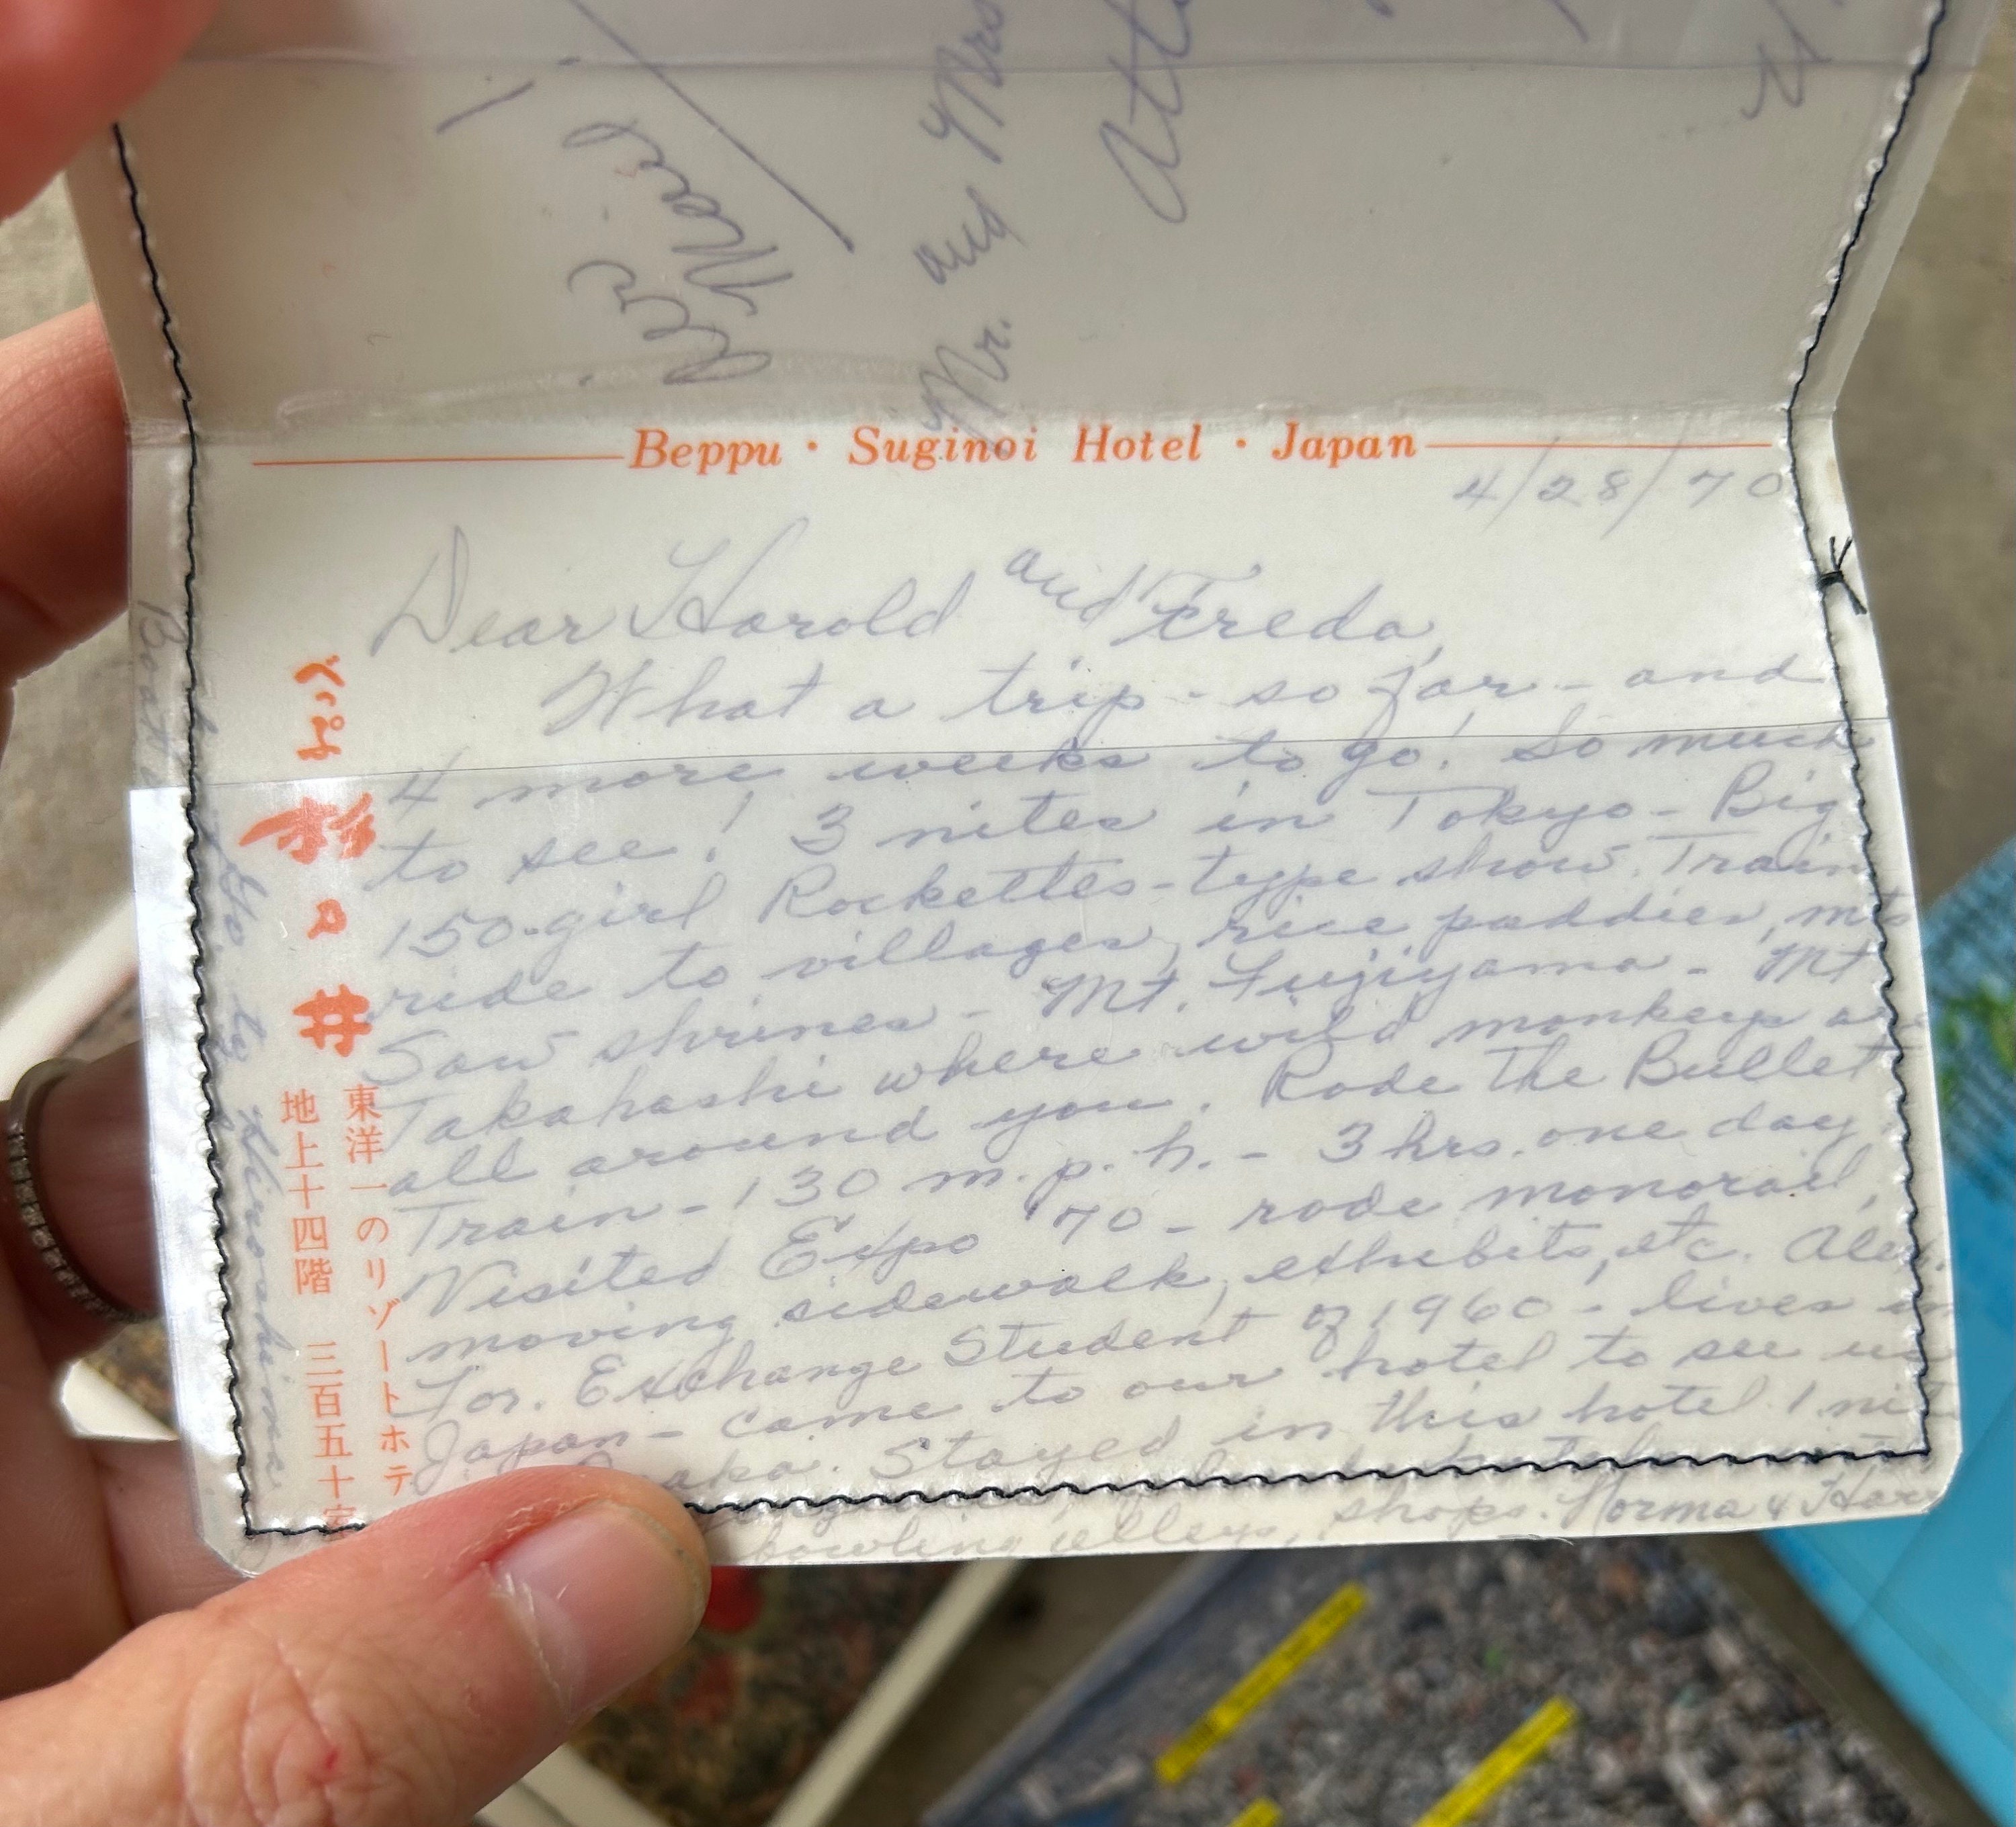 Air Mail
Mr. and Mrs
Beppu · Suginoi Hotel · Japan
4/28/70
Dear Harold and Freda,
What a trip - so far - and
4 more weeks to go! So much
to see! 3 nites in Tokyo - Big
150-girl Rockettes-type show. Train
ride to villages, rice paddies, mts
Saw shrines - Mt. Fujiyama - Mt
Takahashi where wild monkeys are
all around you. Rode the Bullet
Train - 130 m.p.h. - 3 hrs. one day.
Visited Expo '70 - rode monorail,
moving sidewalk, exhibits, etc. Alex.
For. Exchange Student of 1960 - lives in
Japan - came to our hotel to see us
Stayed in this hotel 1 nite
bowling alleys, shops. Norma &
べっぷ
杉乃井
東洋一のリゾートホテ
地上十四階 三百五十室
Boat
to Hiroshima